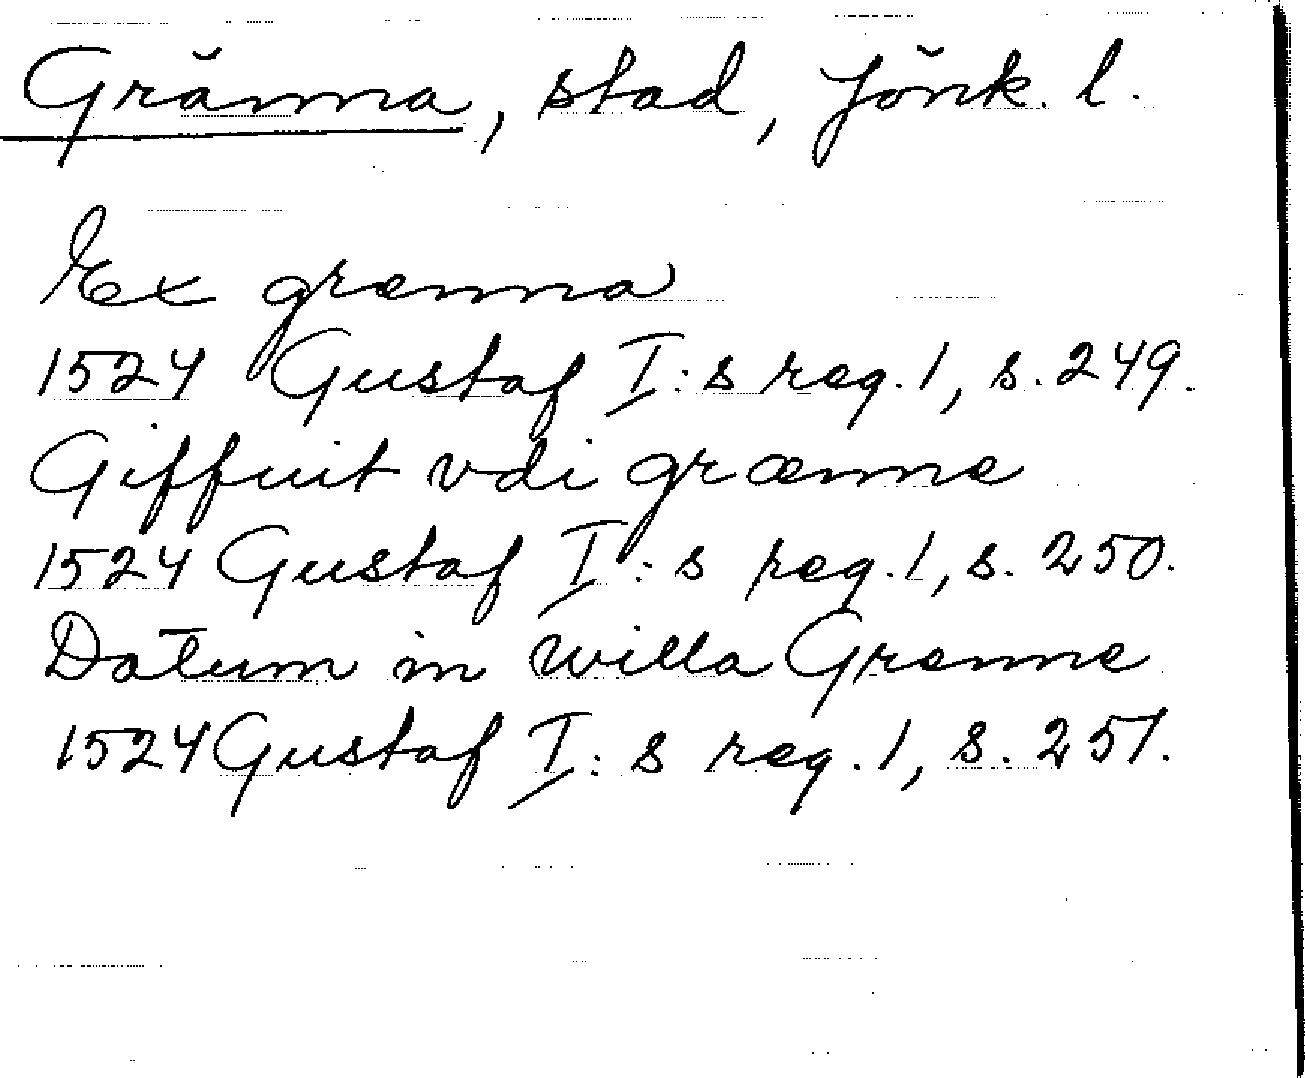 Gränna, stad, Jönk. l.
Ex grænna
1524 Gustaf I:s reg. 1, s. 249.
Giffuit vdi grænne
1524 Gustaf I:s reg. 1, s. 250.
Datum in willa Grenne
1524 Gustaf I:s reg. 1, s. 251.